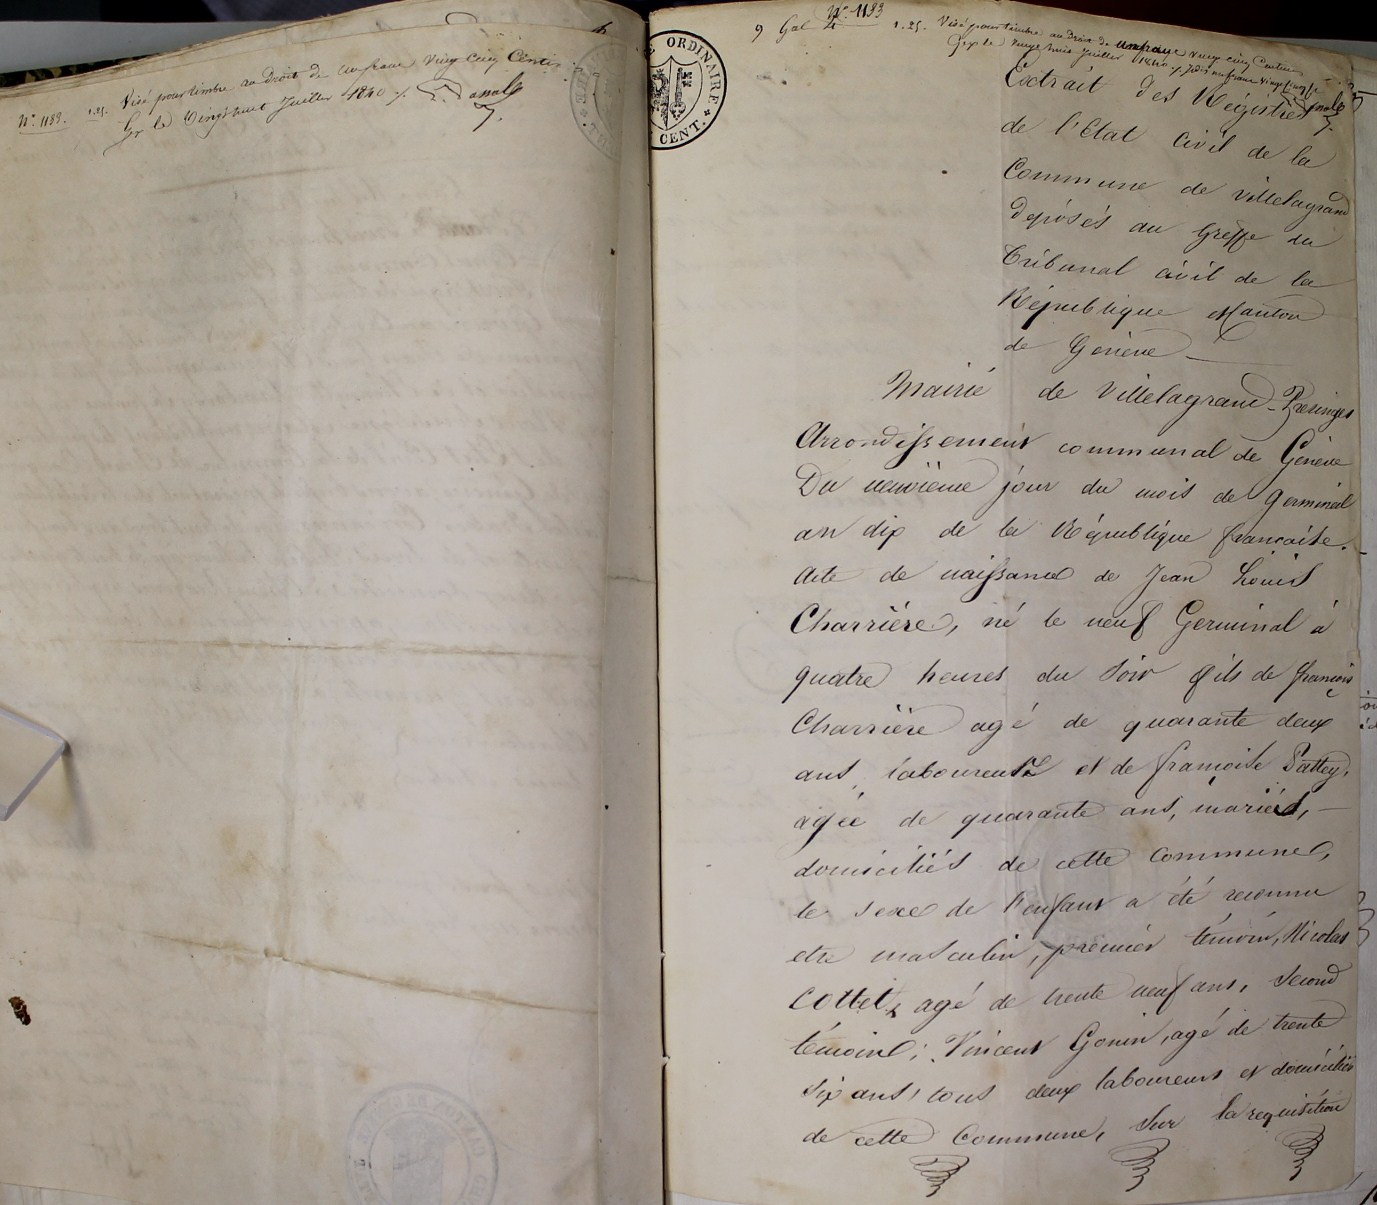 N°. 1183. 1.25. Visé pour timbre au droit de un franc Vingt cinq Centes
Gx le Vingt huit Juillet 1840
9 Gal 4
N°. 1183
1.25. Visé pour timbre au droit de un franc vingt cinq Centimes
Gex le vingt huit Juillet 1840
ORDINAIRE
CENT.
Extrait des Régistres
de l'Etat Civil de la
Commune de villelagrand
déposés au Greffe du
Tribunal civil de la
République et Canton
de Genève
Mairie de Villelagrand-Presinges
Arrondissement communal de Genève
Du neuvième jour du mois de germinal
an dix de la République française.
Acte de naissance de Jean Louis
Charrière, né le neuf Germinal à
quatre heures du soir fils de françois
Charrière agé de quarante deux
ans, laboureur et de françoise Pattey,
agée de quarante ans, mariés, –
domiciliés de cette commune,
le sexe de l'enfant a été reconnu
etre masculin, premier témoin, Nicolas
Cottet, agé de trente neuf ans, second
témoin; Vincent Gonin, agé de trente
six ans, tous deux laboureurs et domiciliés
de cette Commune, sur la requisition